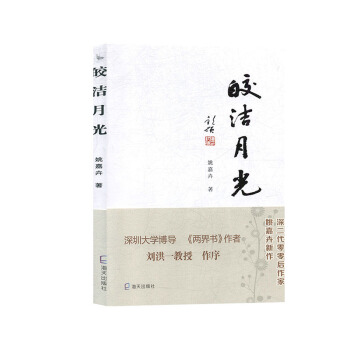 皎洁月光
姚嘉卉 著
海天出版社
皎洁月光
姚嘉卉 著
深二代零零后作家
姚嘉卉新作
深圳大学博导 《两界书》作者
刘洪一教授 作序
海天出版社